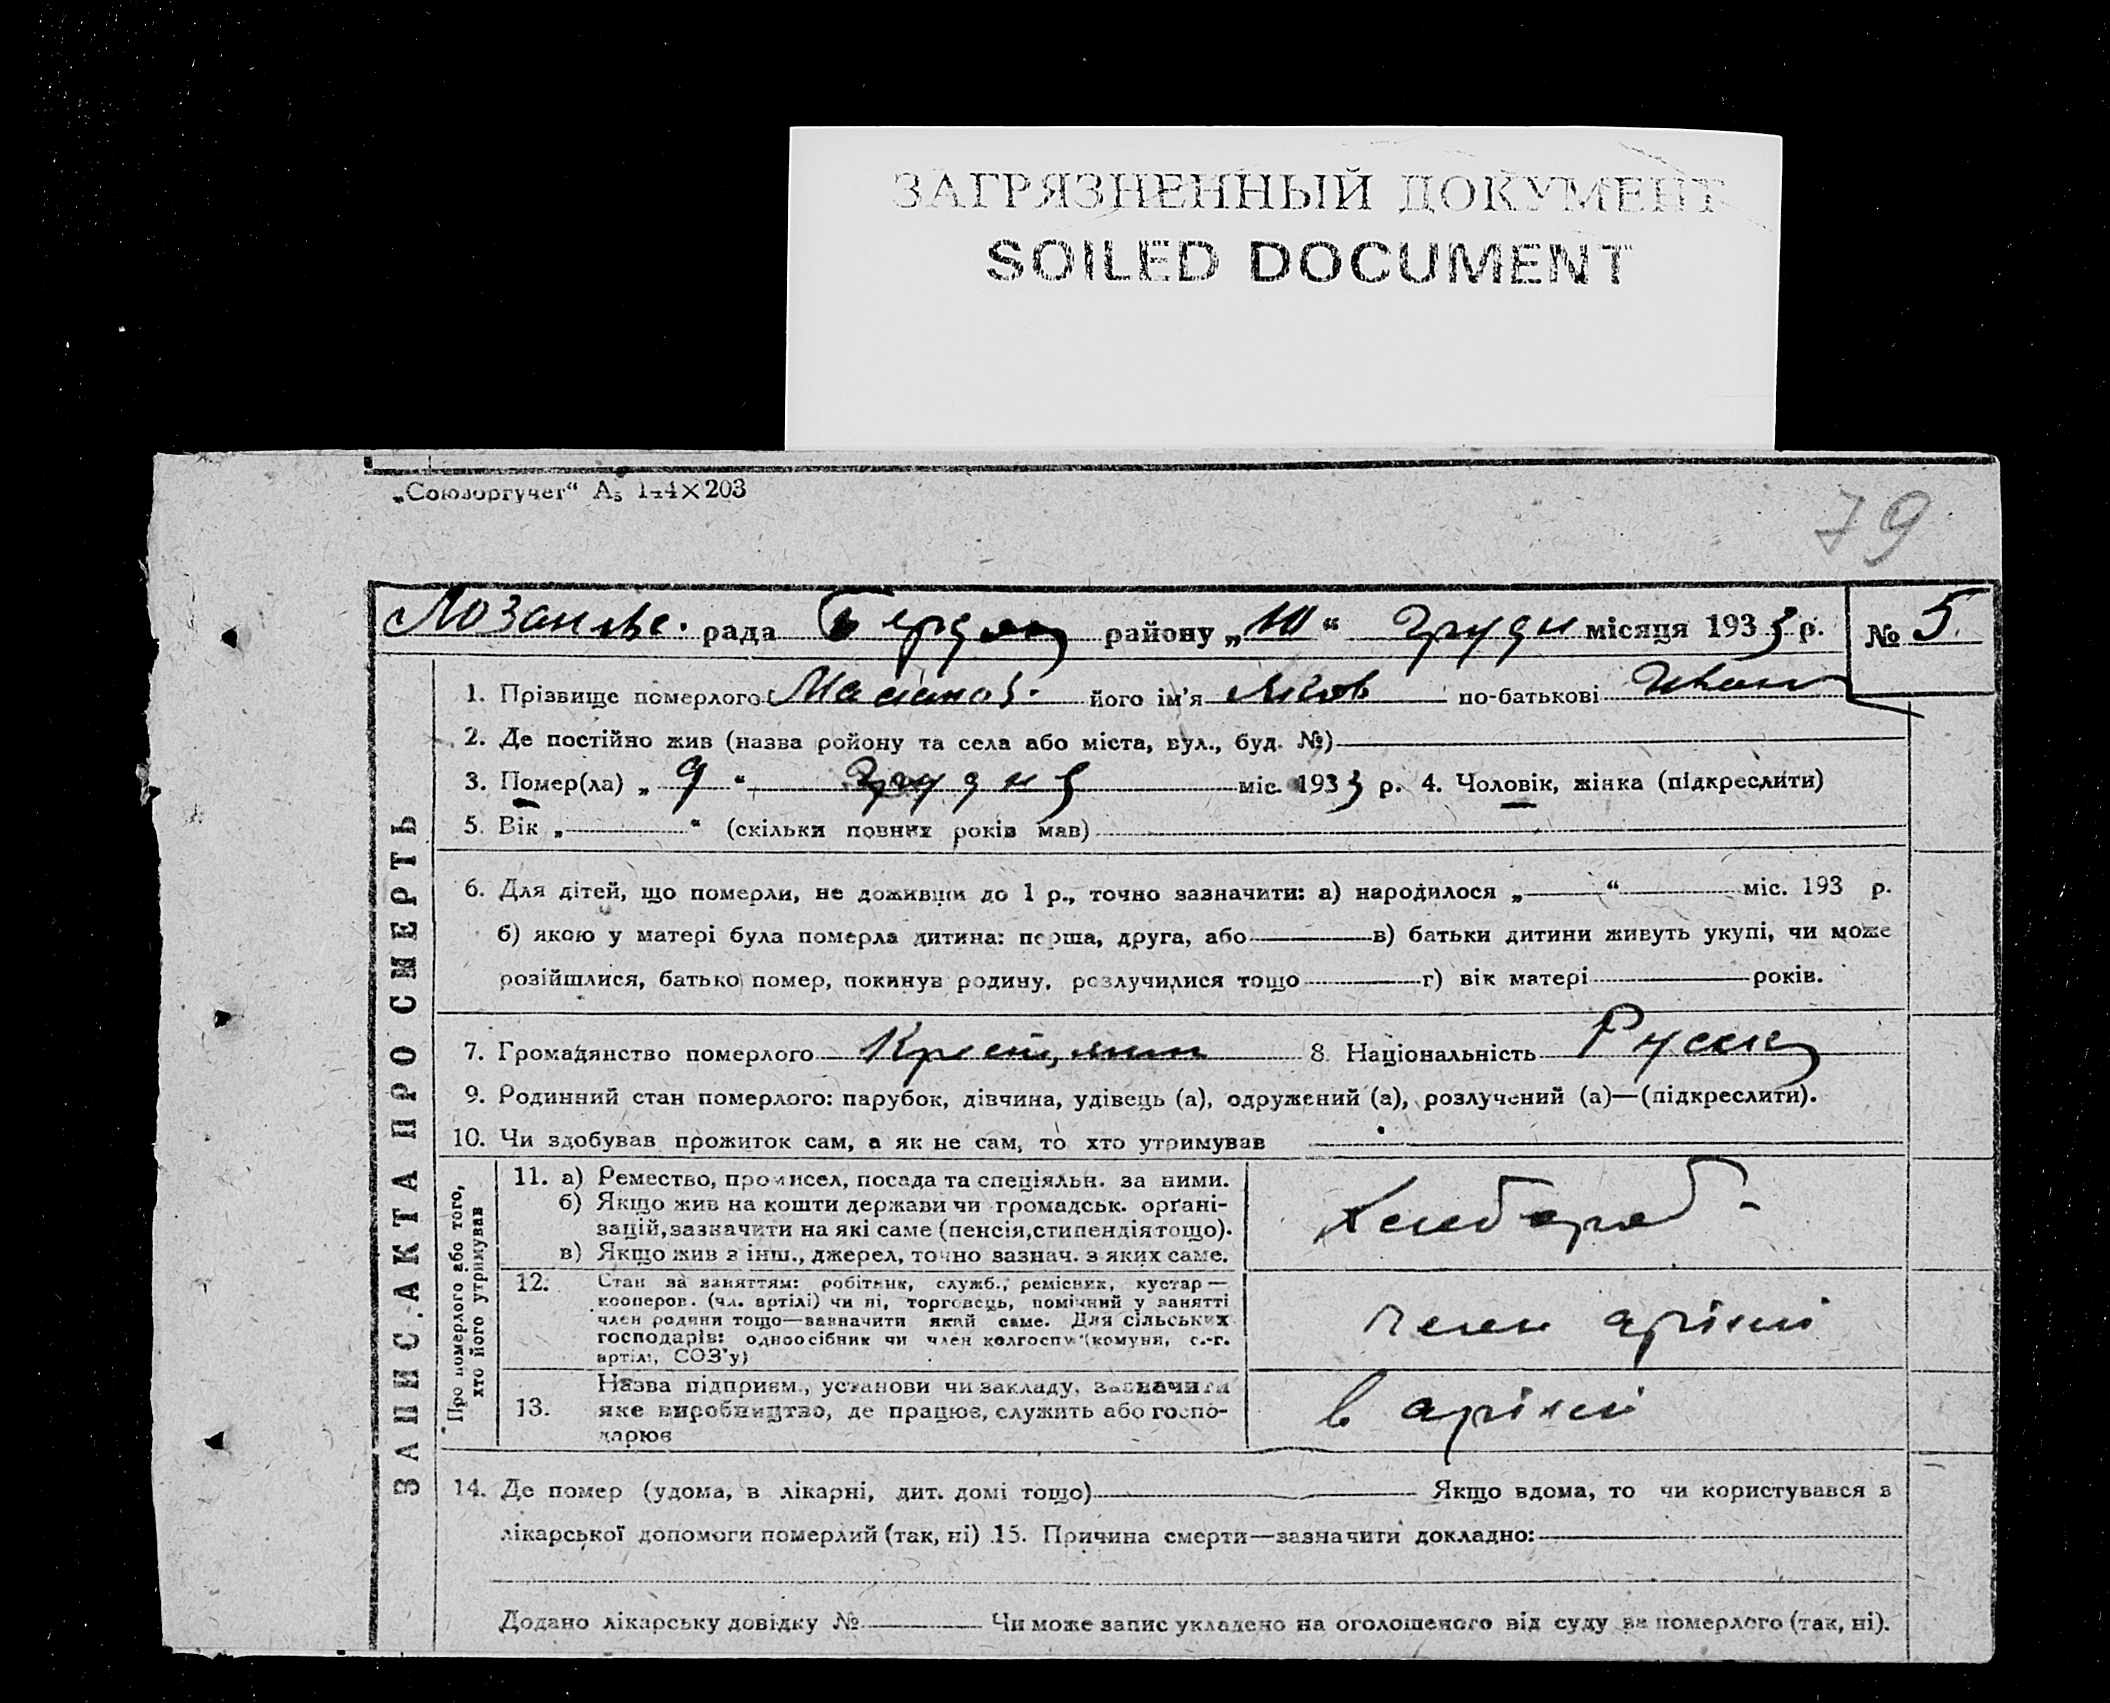 ЗАГРЯЗНЕННЫЙ ДОКУМЕНТ
SOILED DOCUMENT
„Союзоргучет“ А₅ 144×203
79
рада району „ “ груdn місяця 1933 р. № 5.
1. Прізвище померлого його ім'я Яков по-батькові Иван
2. Де постійно жив (назва ройону та села або міста, вул., буд. №)
3. Помер(ла) „ 9 “ грудня міс. 1933 р. 4. Чоловік, жінка (підкреслити)
5. Вік „ “ (скільки повних років мав)
6. Для дітей, що померли, не доживши до 1 р., точно зазначити: а) народилося „ “ міс. 193 р.
б) якою у матері була померла дитина: перша, друга, або в) батьки дитини живуть укупі, чи може
розійшлися, батько помер, покинув родину, розлучилися тощо г) вік матері років.
7. Громадянство померлого 8. Національність Руский
9. Родинний стан померлого: парубок, дівчина, удівець (а), одружений (а), розлучений (а)—(підкреслити).
10. Чи здобував прожиток сам, а як не сам, то хто утримував
ЗАПИС АКТА ПРО СМЕРТЬ
Про померлого або того,
хто його утримував
11. а) Ремество, промисел, посада та спеціяльн. за ними.
б) Якщо жив на кошти держави чи громадськ. орґані-
зацій, зазначити на які саме (пенсія, стипендія тощо).
в) Якщо жив з інш., джерел, точно зазнач. з яких саме.
Хлебороб-
12. Стан за заняттям: робітник, служб., ремісник, кустар —
кооперов. (чл. артілі) чи ні, торговець, помічний у занятті
член родини тощо—зазначити який саме. Для сільських
господарів: одноосібник чи член колгоспу (комуни, с.-г.
артілі, СОЗ'у)
член артілі
13. Назва підприєм., установи чи закладу, зазначити
яке виробництво, де працює, служить або госпо-
дарює
в артілі
14. Де помер (удома, в лікарні, дит. домі тощо) Якщо вдома, то чи користувався з
лікарської допомоги померлий (так, ні) 15. Причина смерти—зазначити докладно:
Додано лікарську довідку № Чи може запис укладено на оголошеного від суду за померлого (так, ні).